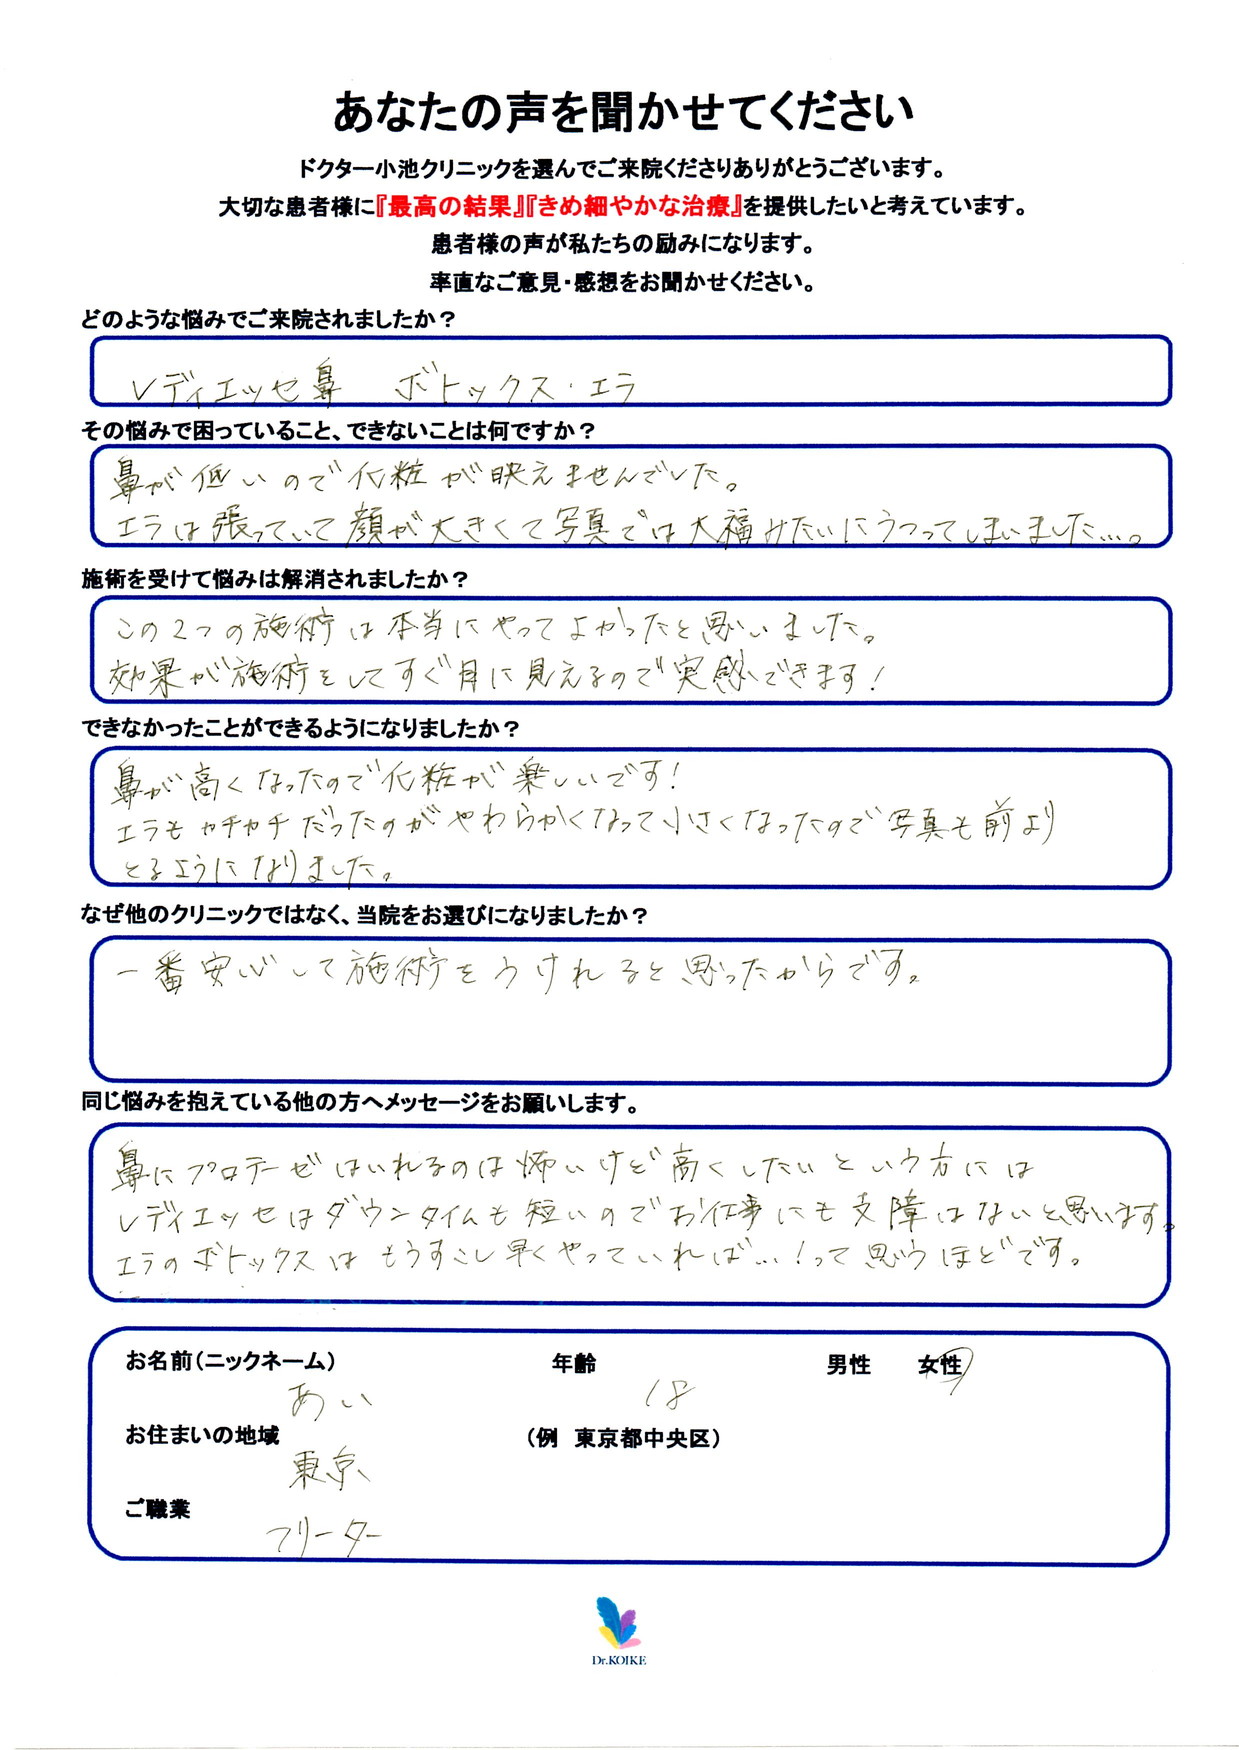 あなたの声を聞かせてください
ドクター小池クリニックを選んでご来院くださりありがとうございます。
大切な患者様に『最高の結果』『きめ細やかな治療』を提供したいと考えています。
患者様の声が私たちの励みになります。
率直なご意見・感想をお聞かせください。
どのような悩みでご来院されましたか？
レディエッセ鼻　ボトックス・エラ
その悩みで困っていること、できないことは何ですか？
鼻が低いので化粧が映えませんでした。
エラは張っていて顔が大きくて写真では大福みたいにうつってしまいました…。
施術を受けて悩みは解消されましたか？
この2つの施術は本当にやってよかったと思いました。
効果が施術をしてすぐ目に見えるので実感できます！
できなかったことができるようになりましたか？
鼻が高くなったので化粧が楽しいです！
エラもカチカチだったのがやわらかくなって小さくなったので写真も前より
とるようになりました。
なぜ他のクリニックではなく、当院をお選びになりましたか？
一番安心して施術をうけれると思ったからです。
同じ悩みを抱えている他の方へメッセージをお願いします。
鼻にプロテーゼはいれるのは怖いけど高くしたいという方には
レディエッセはダウンタイムも短いのでお仕事にも支障はないと思います。
エラのボトックスはもうすこし早くやっていれば…！って思うほどです。
お名前（ニックネーム）　年齢　男性　女性
あい　18
お住まいの地域　（例　東京都中央区）
東京
ご職業
フリーター
Dr.KOIKE